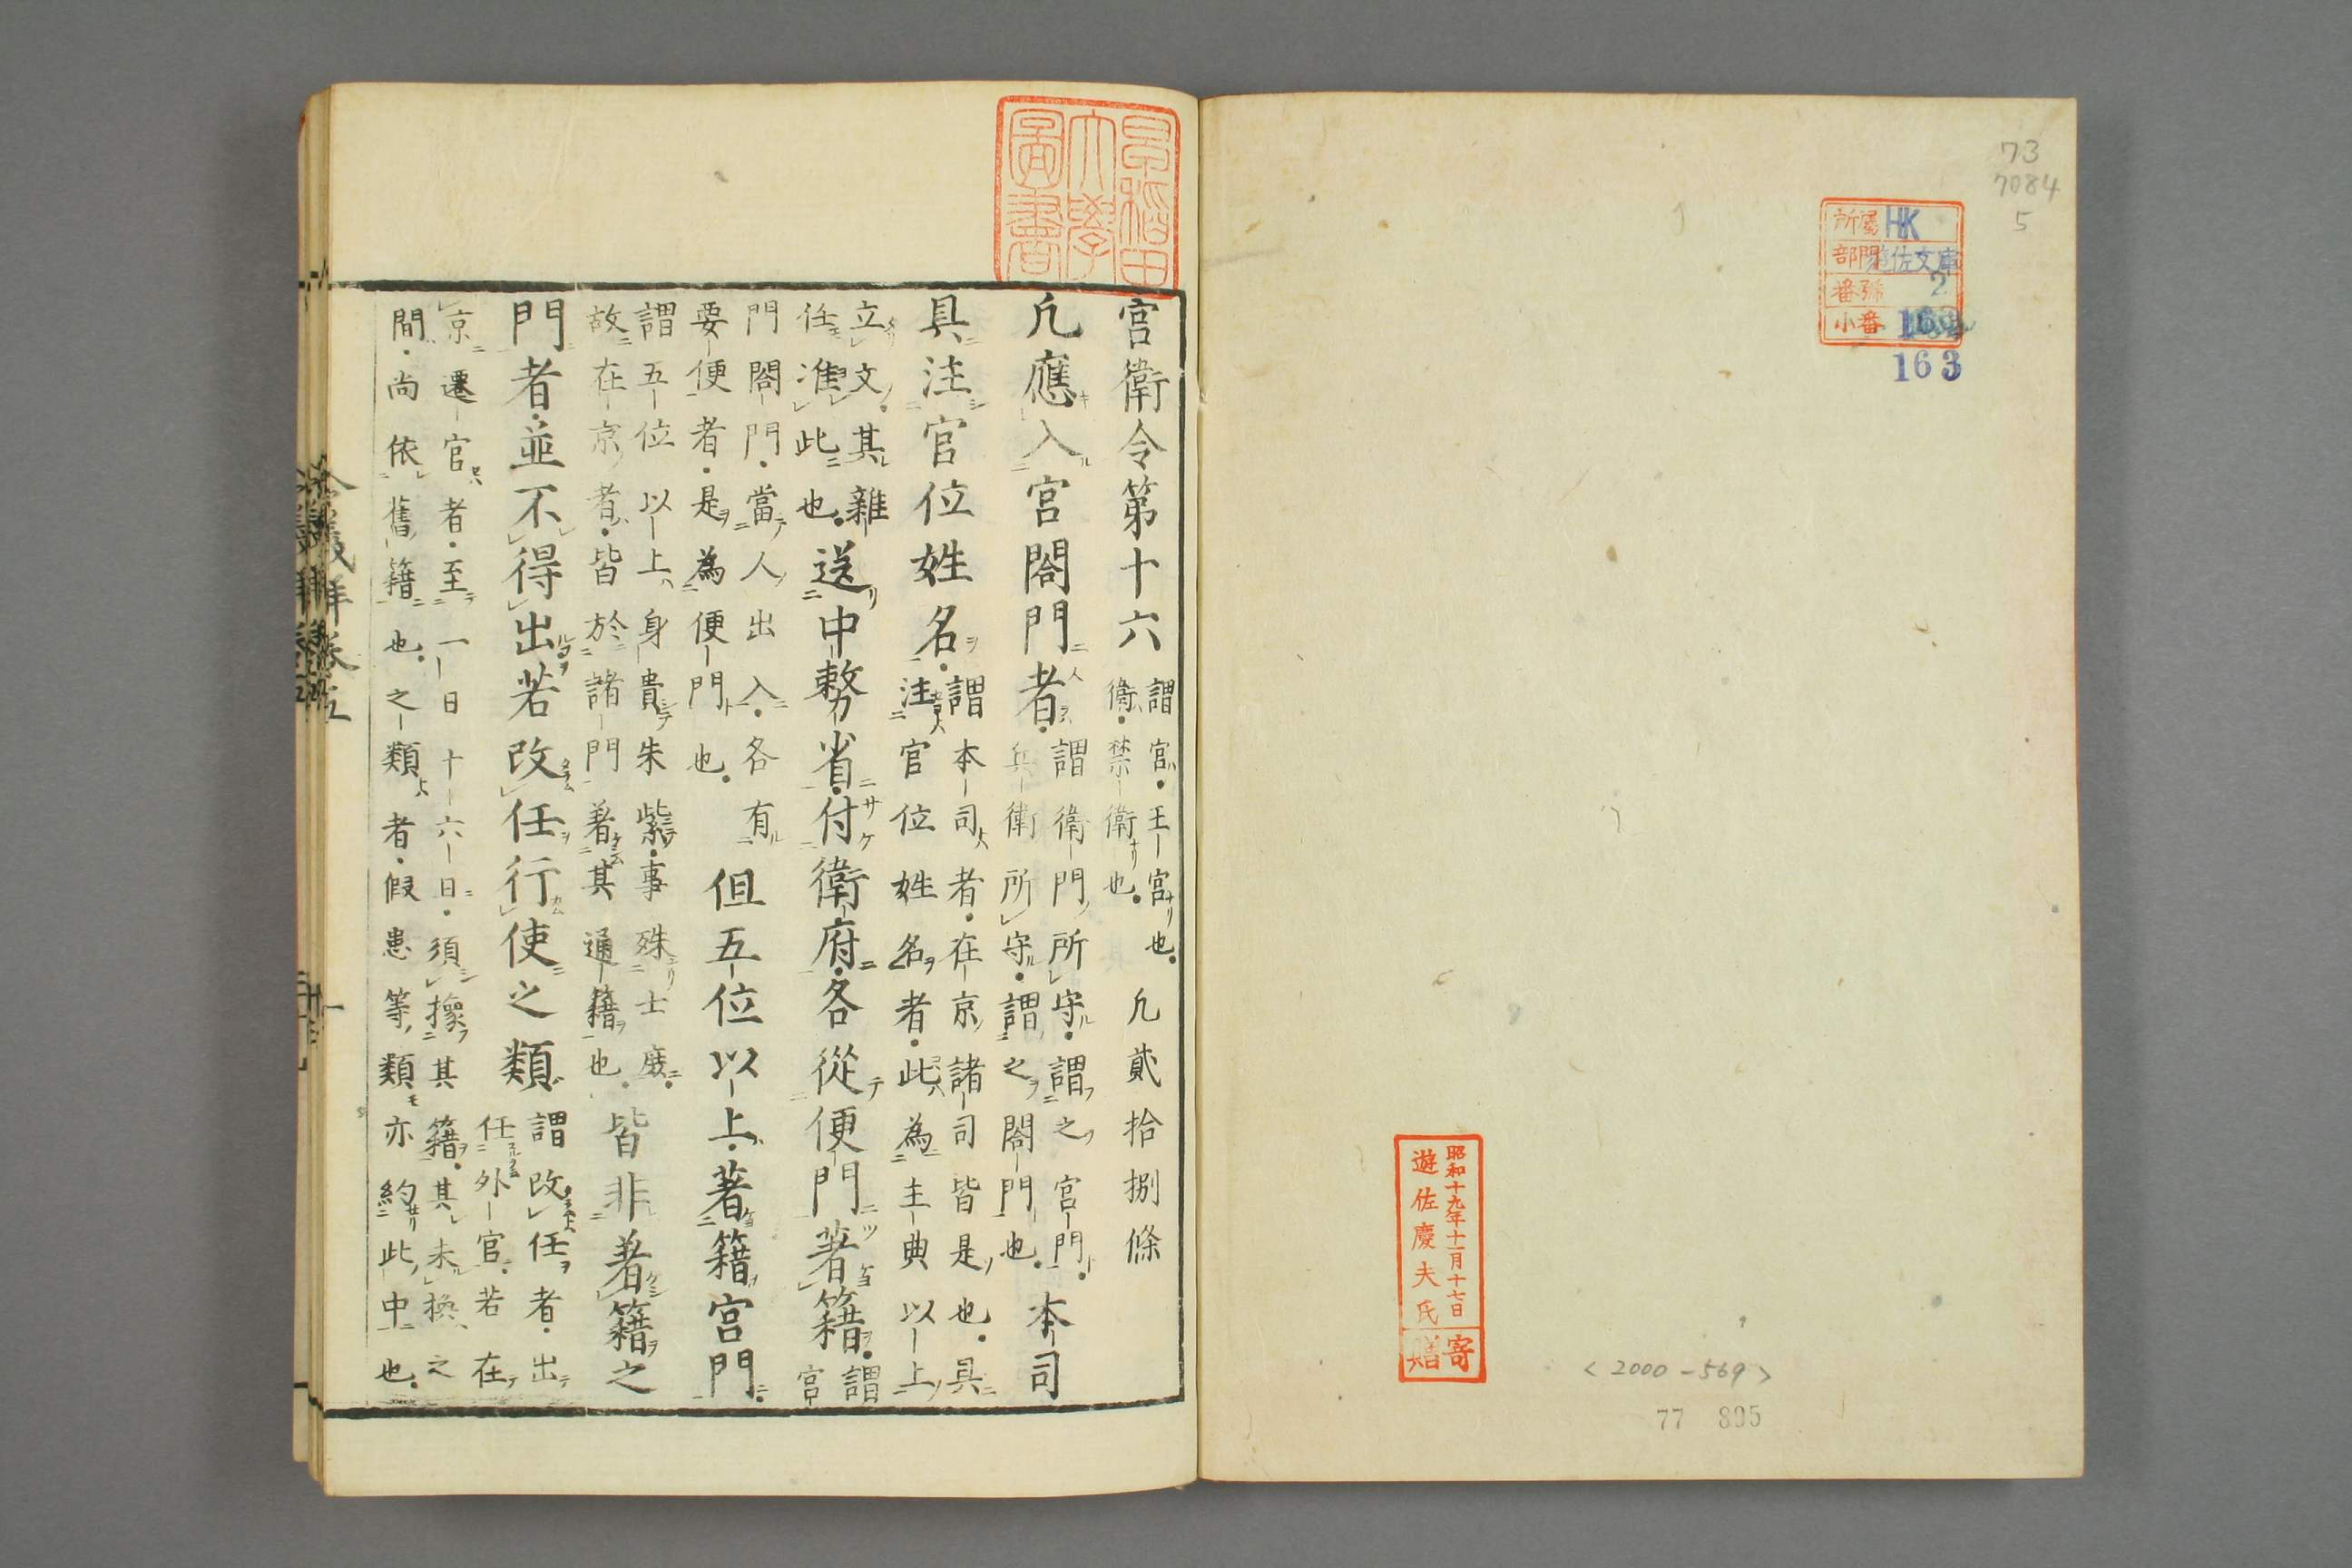 73
7084
5
所屬 HK
部門 遊佐文庫
番號 2
小番
163
昭和十九年十一月十七日
遊佐慶夫氏
寄贈
<2000-569>
77 895
早稲田
大學
圖書
宮衛令第十六 謂宮王宮也衛禁衛也 凡貳拾捌條
凡應入宮閤門者 謂衛門所守謂之宮門兵衛所守謂之閤門也 本司
具注官位姓名 謂本司者在京諸司皆是也具注官位姓名者此為主典以上
立文其雜任准此也 送中務省付衛府各從便門著籍 謂宮
門閤門當人出入各有要便者是為便門也 但五位以上著籍宮門
謂五位以上身貴朱紫事殊士庶故在京者皆於諸門著其通籍也 皆非著籍之
門者並不得出若改任行使之類 謂改任者出任外官若在
京遷官者至一日十六日須換其籍其未換之間尚依舊籍也之類者假患等類亦約此中也
令義解卷五 一